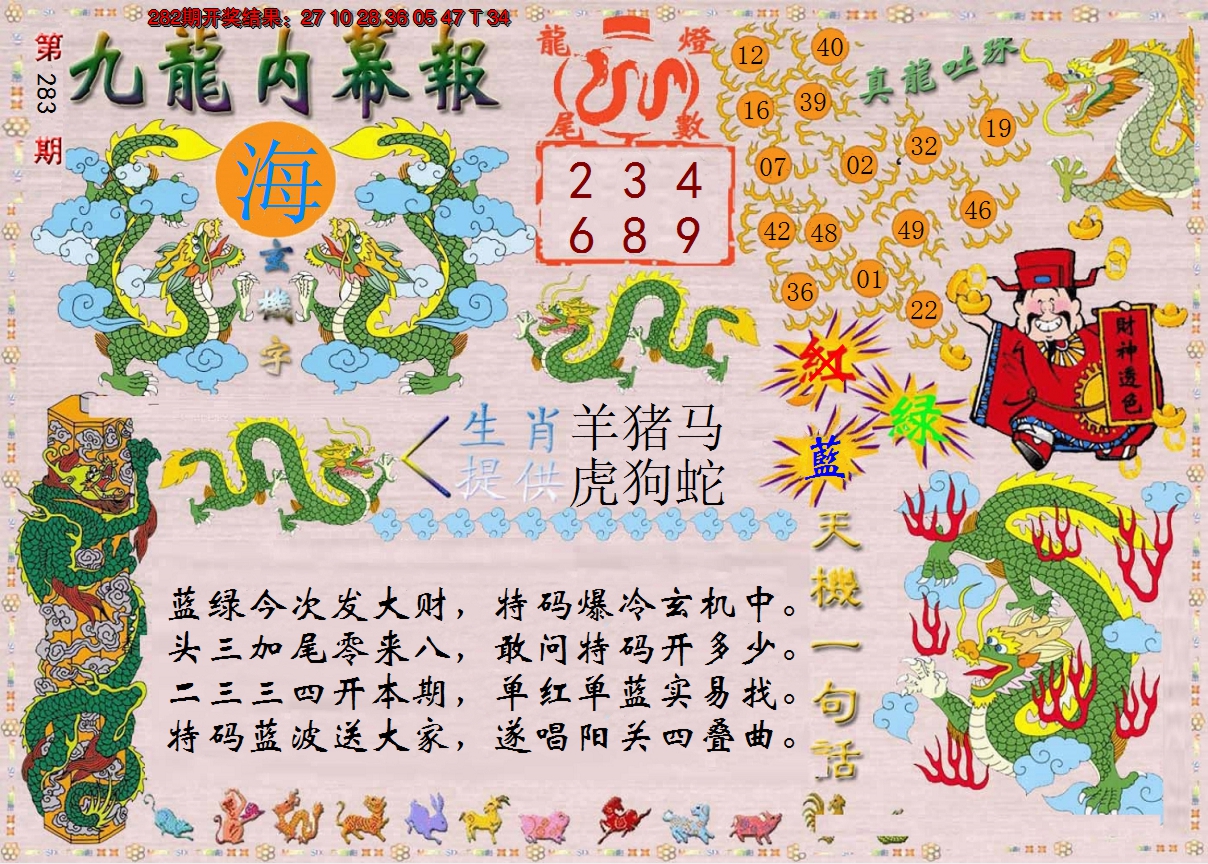 282期开奖结果：27 10 28 36 05 47 T 34
第283期
九龍内幕報
海
玄機字
龍燈
尾數
2 3 4
6 8 9
真龍吐珠
12
40
16
39
19
32
07
02
46
42
48
49
01
36
22
財神透色
紅
绿
藍
生肖提供
羊猪马
虎狗蛇
蓝绿今次发大财，特码爆冷玄机中。
头三加尾零来八，敢问特码开多少。
二三三四开本期，单红单蓝实易找。
特码蓝波送大家，遂唱阳关四叠曲。
天機一句話